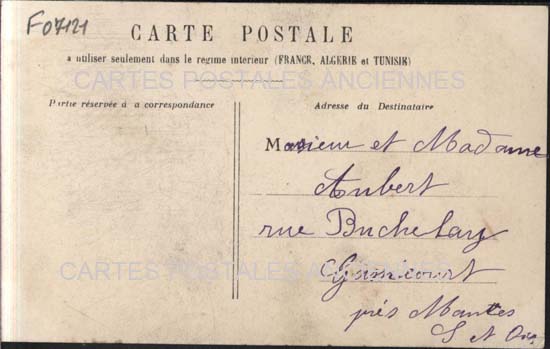 F07121
CARTE POSTALE
a utiliser seulement dans le regime interieur (FRANCE, ALGERIE et TUNISIE)
CARTES POSTALES ANCIENNES
Partie réservée à a correspondance
Adresse du Destinataire
Monsieur et Madame
Aubert
rue Buchelay
CARTES POSTALES ANCIENNES
près Mantes
S et Oise